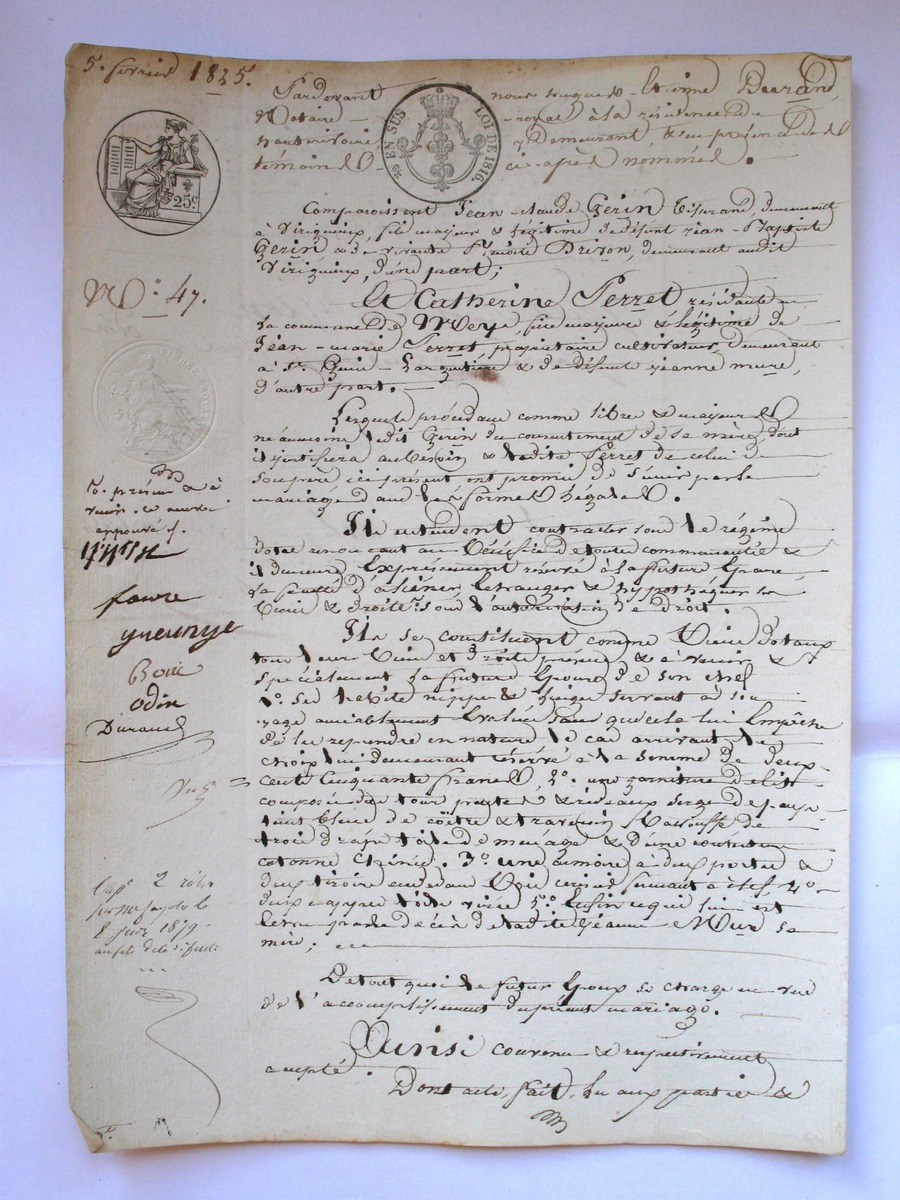 5. février 1825.
Pardevant nous hugues-Etienne Durand
Notaire royal à la résidence de
y demeurant, & en présence des
témoins ci-après nommés.
25 EN SUS LOI DE 1816.
25c
Comparoissent Jean-claude Gerin tisserand, demeurant
à Virigneux, fils majeur & légitime de défunt jean-Baptiste
Gerin & de vivante Benoite Drizon, demeurant audit
Virigneux, d'une part;
N.o 47.
Et Catherine Perret résidante
la commune de Meys, fille majeure & légitime de
Jean-marie Perret propriétaire cultivateur, demeurant
à St. Genis-L'argentière & de défunte jeanne mure,
d'autre part.
Lesquels procédant comme libres & majeurs &
néanmoins ledit Gerin du consentement de sa mère, dont
il justifiera au besoin & ladite Perret de celui de
son père ici présent ont promis de s'unir par le
mariage dans les formes légales.
Ils entendent contracter sous le régime
dotal renoncant au bénéfice de toute communauté &
il demeure Expressément réservé à la future Epouse
la faculté d'aliéner, Echanger & hypothéquer ses
Biens & droits sous l'autorisation de droit.
Ils se constituent comme Biens dotaux
tous leurs Biens et droits présens & à venir &
spécialement la future Epouse de son chef
1.o ses habits nippes & linges servant à son
usage amiablement Evalués sans que cela lui Empêche
de les reprendre en nature le cas arrivant le
choix lui demeurant réservé à la somme de deux
Cents Cinquante francs, 2.o une garniture de lit
composée du tour pentes & rideaux serge de pays
teint bleue de coëtre & traversin
trois draps toile de ménage & d'une couverture
cotonne Chenic. 3.o une armoire à deux portes &
deux tiroirs en dedans Bois cerisier fermant à clef, 4.o
deux nappes toile 5.o Enfin ce qui lui est
Echu par le décès de ladite Jeanne Mure sa
mère;
De tout quoi le futur Epoux se charge en vue
de l'accomplissement du présent mariage.
Ainsi convenu & respectivement
accepté.
Dont acte, fait, lu aux parties &
présens & à
venir
approuvé
faure
gueunye
odin
Durand
2 rôles
8 1879